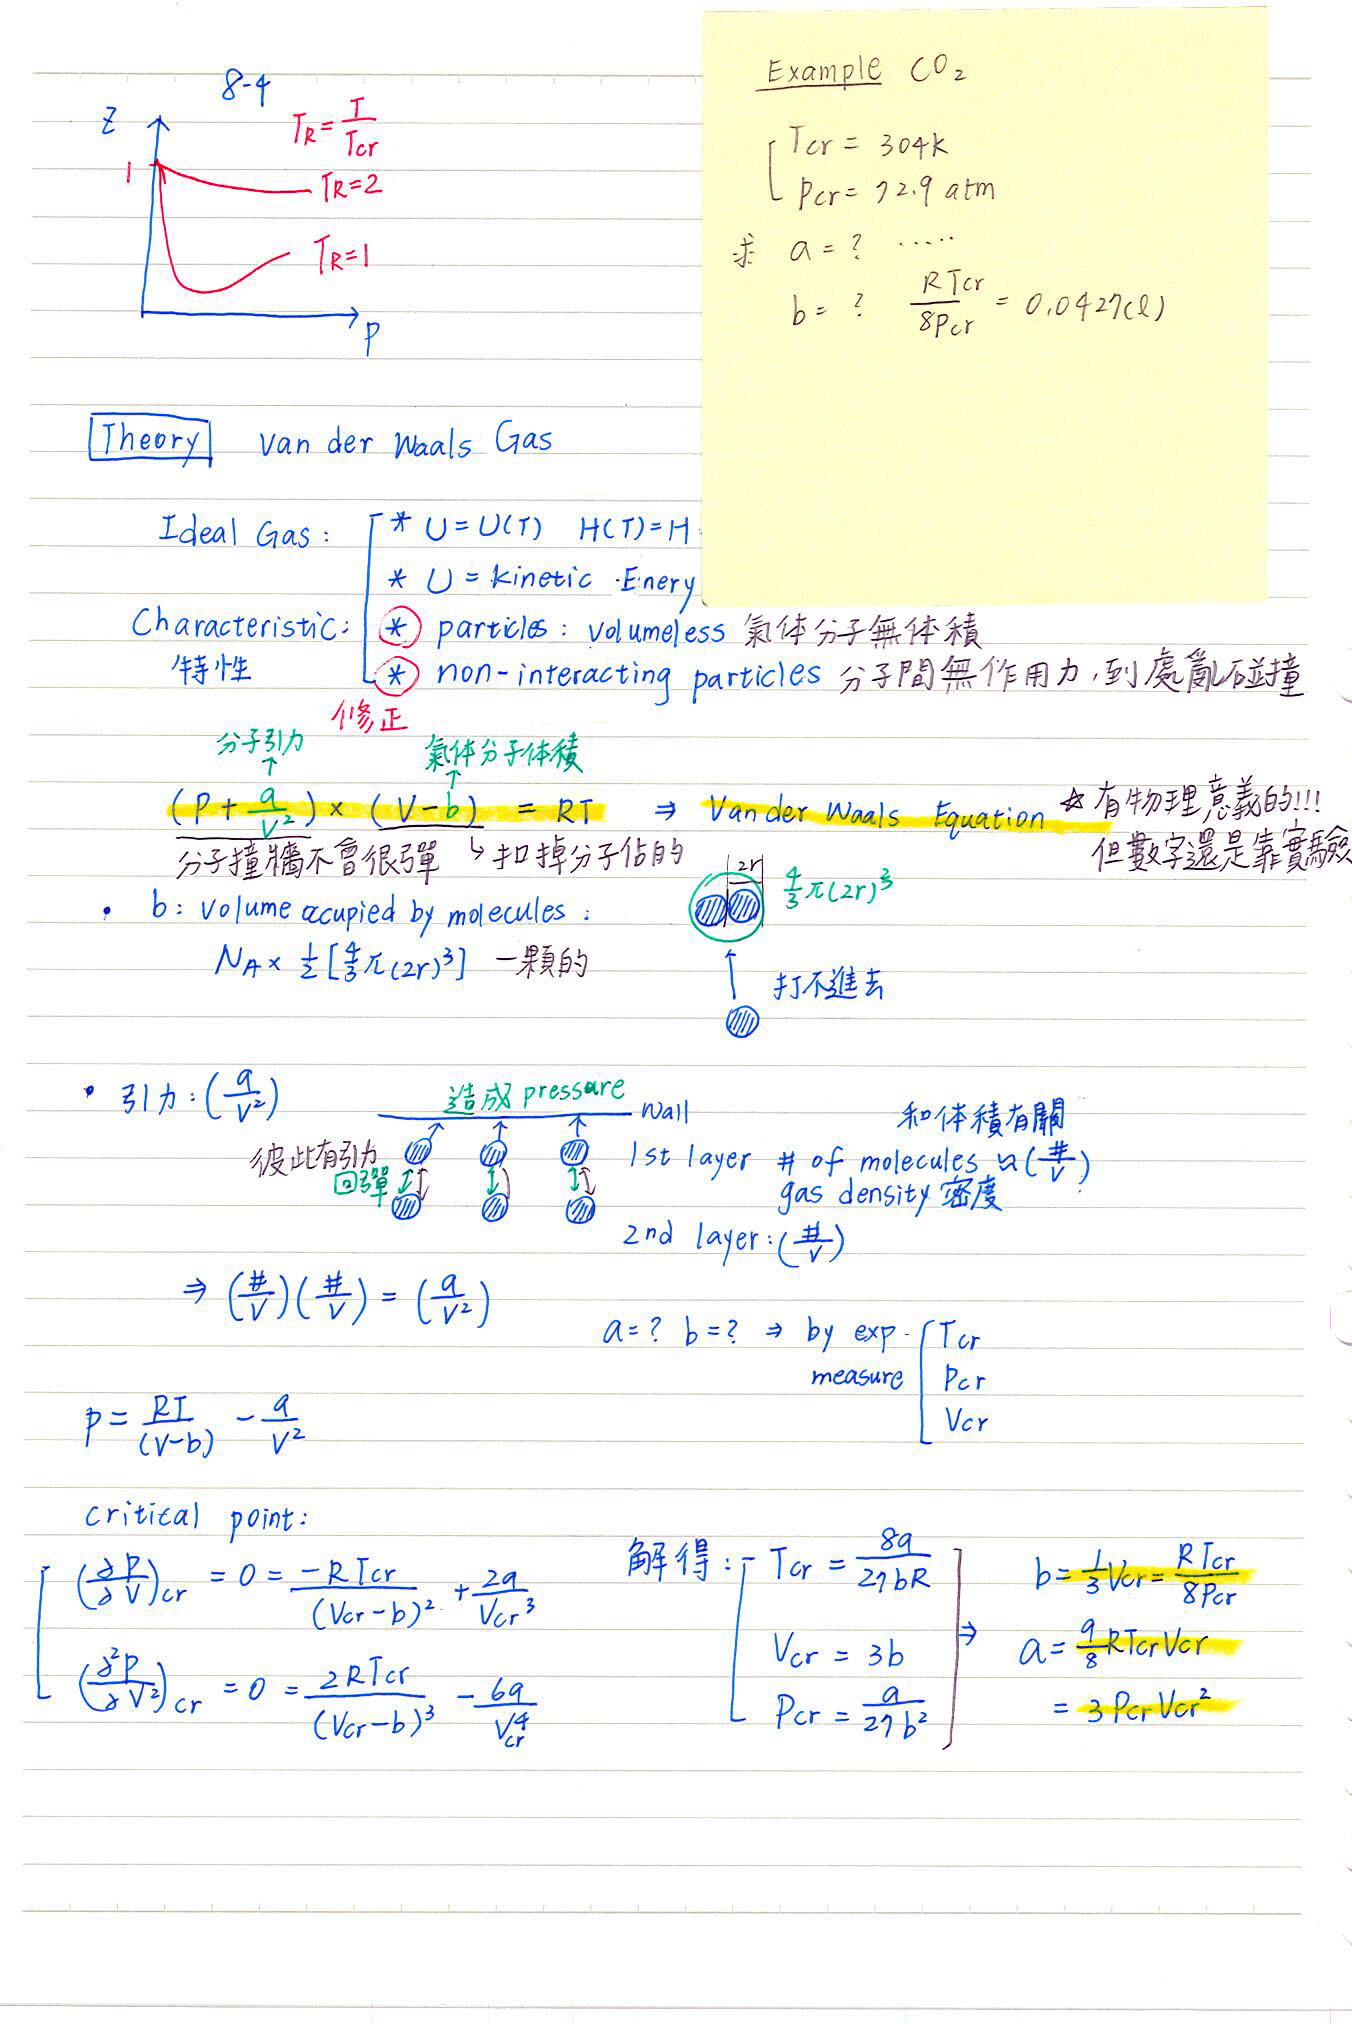 8-4
Z
T_R = T/Tcr
1
T_R=2
T_R=1
P
Example CO₂
Tcr = 304K
Pcr = 72.9 atm
求 a = ? .....
b = ? RTcr/8Pcr = 0.0427(l)
Theory Van der Waals Gas
Ideal Gas: * U=U(T) H(T)=H
* U = kinetic Enery
Characteristic: * particles: volumeless 氣体分子無体積
特性 * non-interacting particles 分子間無作用力,到處亂碰撞
修正
分子引力 氣体分子体積
(P + a/V²) × (V-b) = RT ⇒ Van der Waals Equation ☆有物理意義的!!!
分子撞牆不會很彈 ↳扣掉分子佔的 但數字還是靠實驗
2r
4/3 π(2r)³
• b: volume accupied by molecules:
N_A × 1/2 [4/3 π(2r)³] 一顆的
打不進去
• 引力:(a/V²)
造成pressure
wall
和体積有關
彼此有引力
1st layer # of molecules ∝ (#/V)
回彈
gas density 密度
2nd layer: (#/V)
⇒ (#/V)(#/V) = (a/V²)
a=? b=? ⇒ by exp. Tcr
measure Pcr
Vcr
P = RT/(V-b) - a/V²
critical point:
(∂P/∂V)cr = 0 = -RTcr/(Vcr-b)² + 2a/Vcr³
(∂²P/∂V²)cr = 0 = 2RTcr/(Vcr-b)³ - 6a/Vcr⁴
解得: Tcr = 8a/27bR
Vcr = 3b
Pcr = a/27b²
⇒
b = 1/3 Vcr = RTcr/8Pcr
a = 9/8 RTcrVcr
= 3PcrVcr²